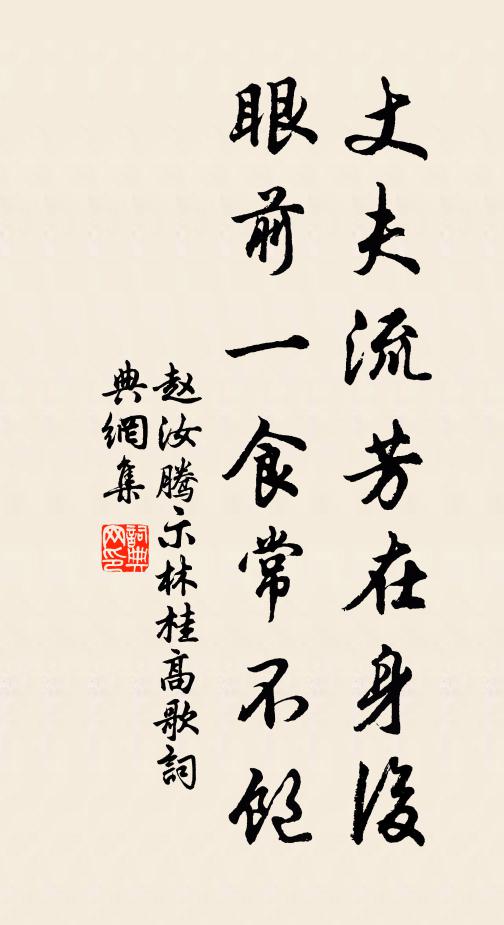 丈夫流芳在身後
眼前一食常不飽
赵汝腾示林桂高歌詞
典網集
詞典網印